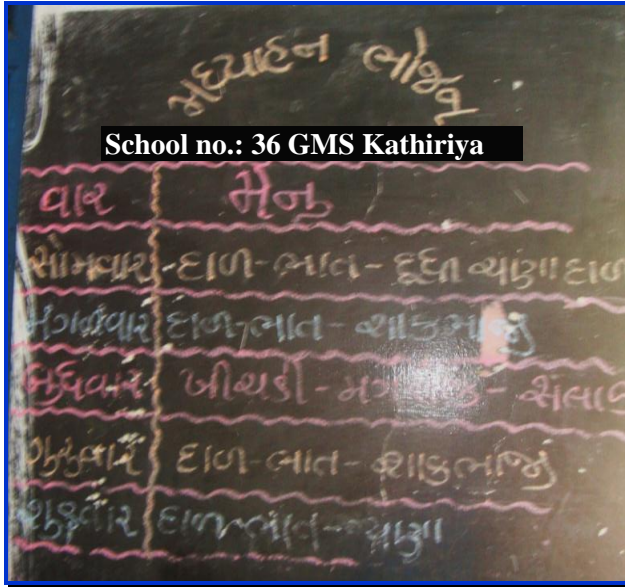 મધ્યાહન ભોજન
School no.: 36 GMS Kathiriya
વાર મેનુ
સોમવાર - દાળ - ભાત - દૂધી ચણા દાળ
મંગળવાર દાળ - ભાત - શાકભાજી
બુધવાર ખીચડી - સલાડ
ગુરુવાર દાળ - ભાત - શાકભાજી
શુક્રવાર દાળ - ભાત - ચણા